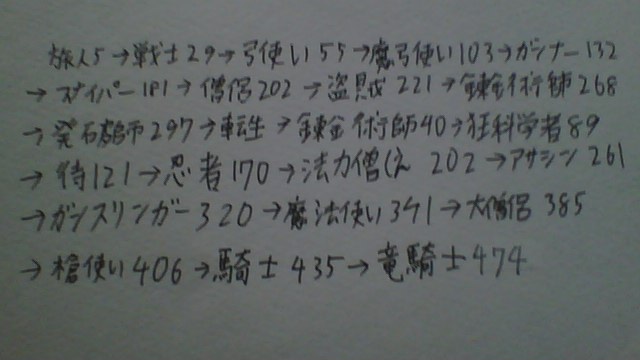 旅人5→戦士29→弓使い55→魔弓使い103→ガンナー132
→スナイパー181→僧侶202→盗賊221→錬金術師268
→発石師297→転生→錬金術師40→狂科学者89
→侍121→忍者170→法力僧 202→アサシン261
→ガンスリンガー320→魔法使い341→大僧侶385
→槍使い406→騎士435→竜騎士474